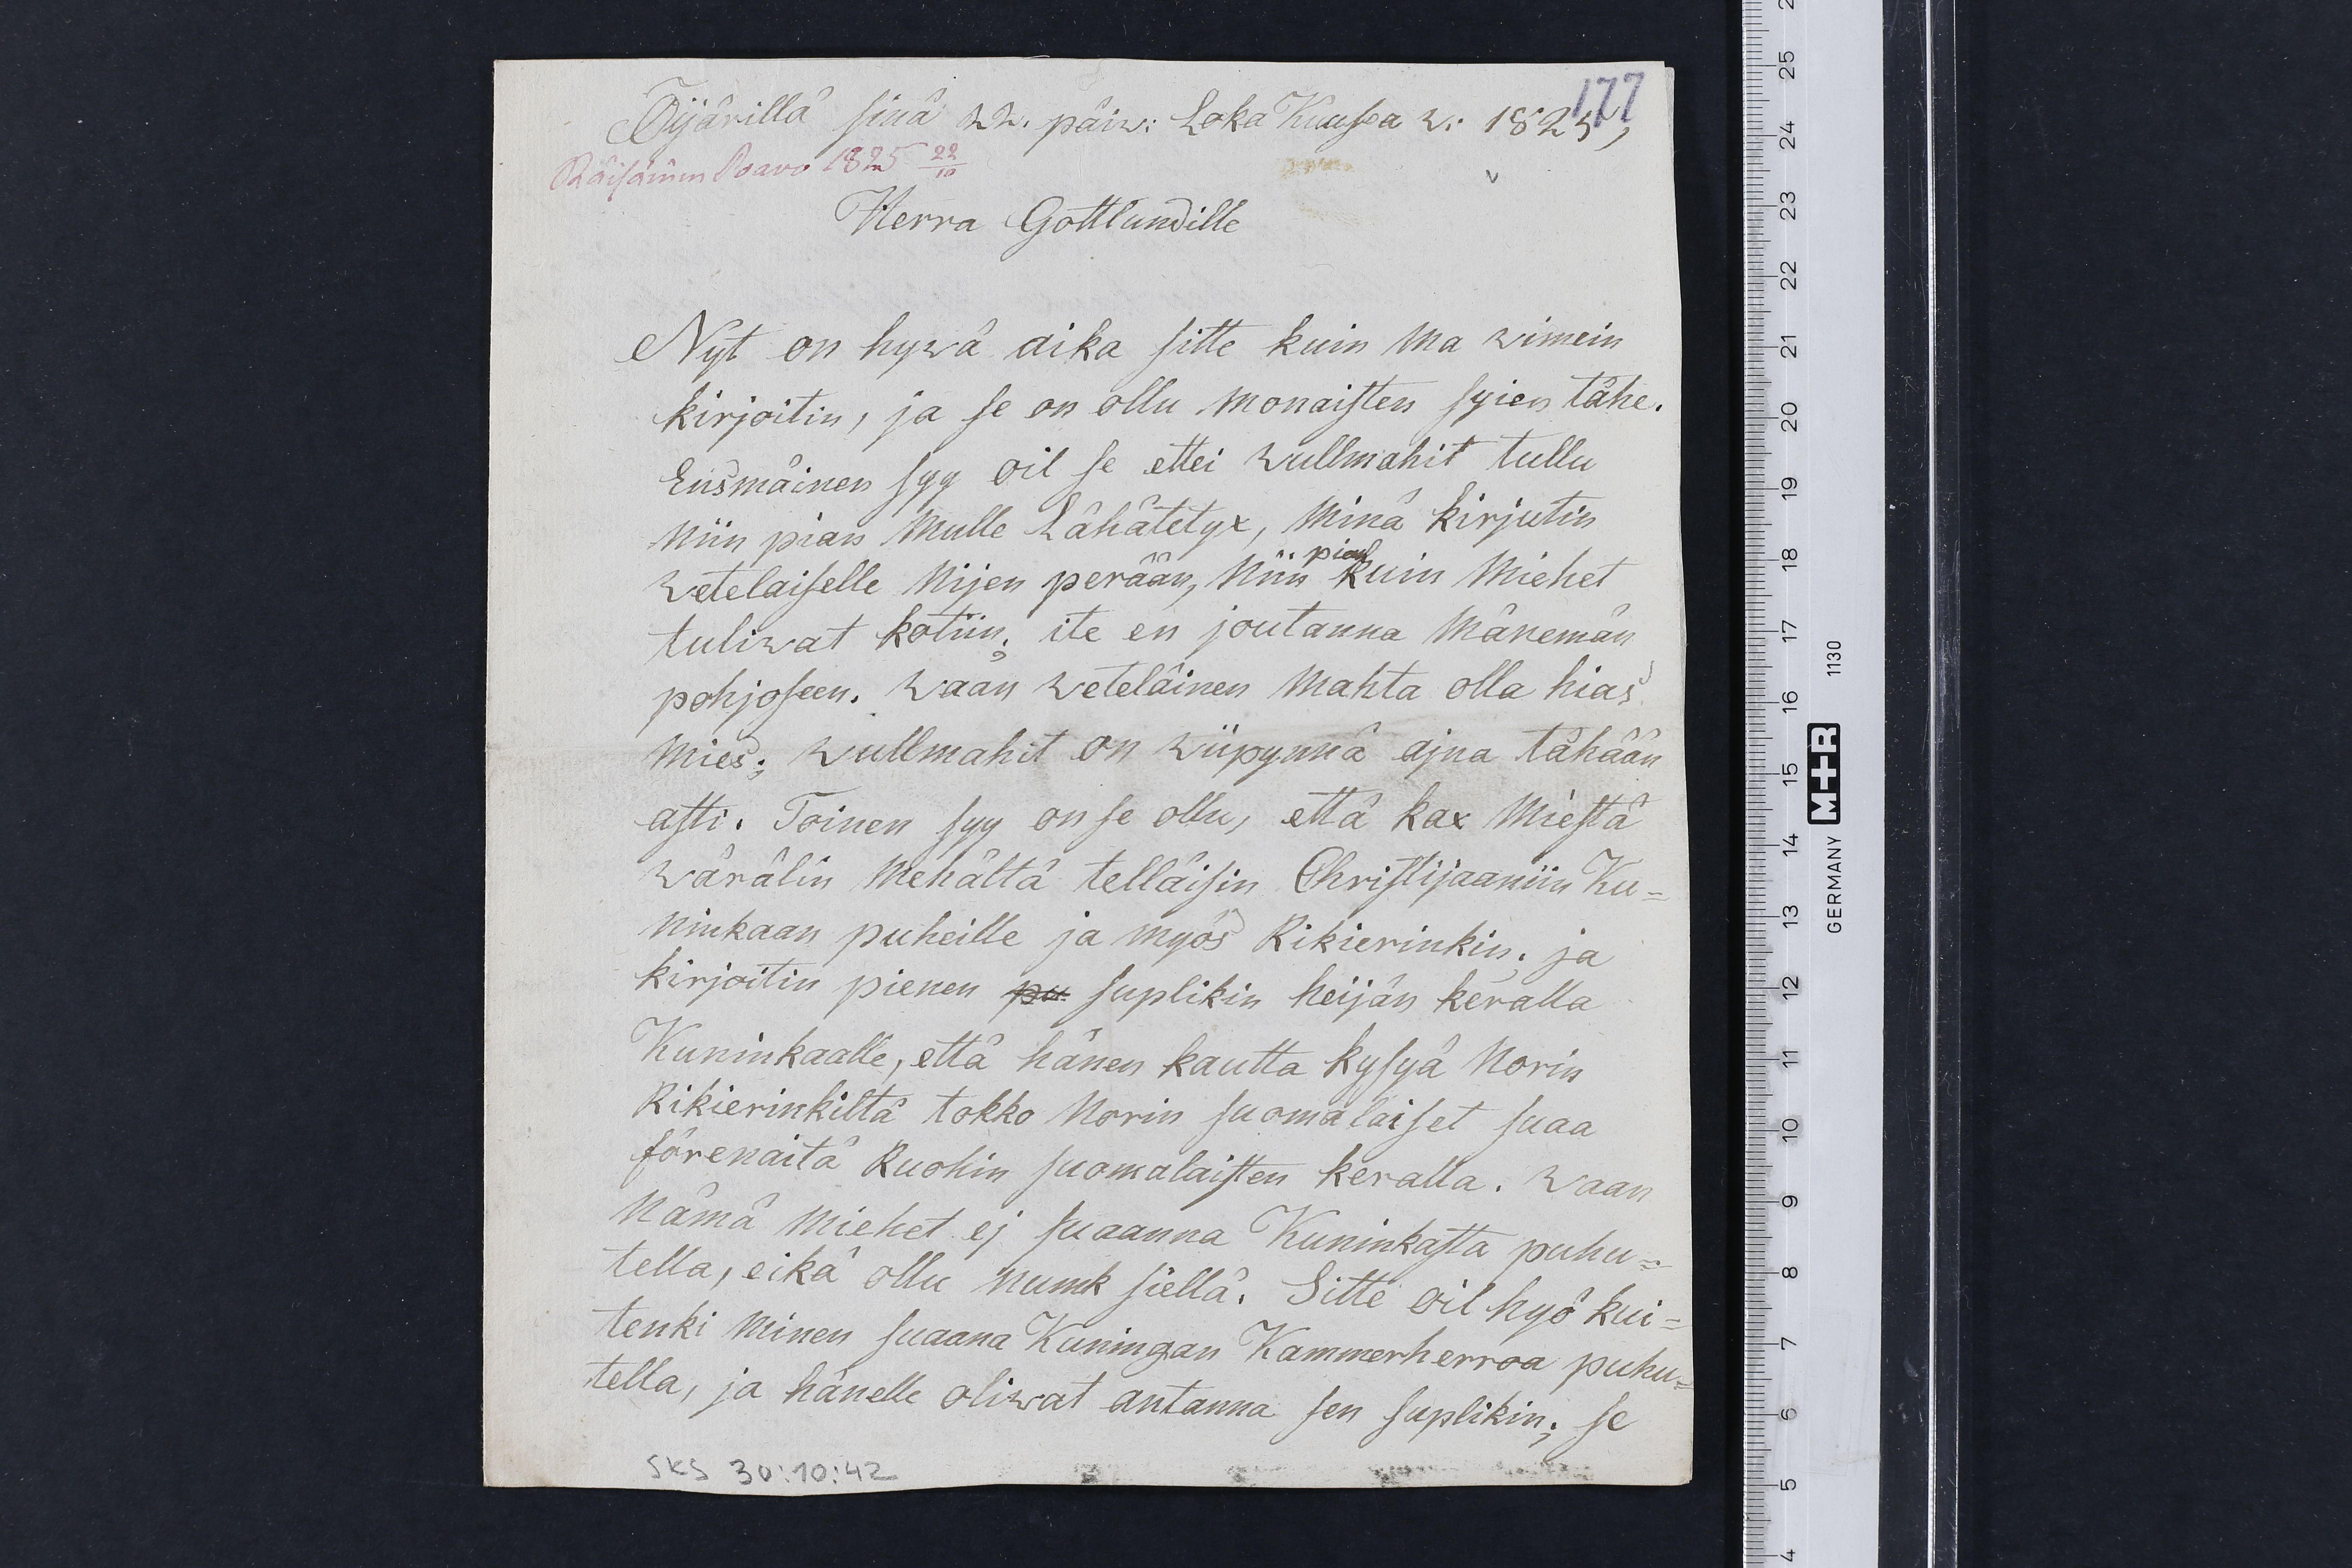 177
Öijärillä sinä 22. päiw: Loka Kuussa w: 1825,
Räisäinen Poavo 1825 22/10
Herra Gottlundille
Nyt on hywä aika sitte kuin ma wimein
kirjoitin, ja se on ollu monaisten syien tähe.
Ensmäinen syy oil se ettei wullmahit tullu
niin pian mulle Lähätetyx, minä kirjutin
wetelaiselle nijen perään, niin pian kuin miehet
tuliwat kotiin; ite en joutanna mänemän
pohjoseen. waan weteläinen mahta olla hias
mies; wullmahit on wiipynnä ajna tähään
asti. Toinen syy on se ollu, että kax miestä
wärälin mehältä telläisin Christijaaniin Ku=
ninkaan puheille ja myös Rikierinkin; ja
kirjoitin pienen pu suplikin heijän keralla
Kuninkaalle, että hänen kautta kysyä Norin
Rikierinkiltä tokko Norin suomalaiset suaa
förenaitä Ruohin suomalaisten keralla. waan
nämä miehet ej suaanna Kuninkasta puhu=
tella, eikä ollu numk siellä. Sitte oil hyö kui=
tenki minen suaana Kuningan Kammerherroa puhu=
tella, ja hänelle oliwat antanna sen suplikin; se
SKS 30:10:42
25
24
23
22
21
20
19
18
17
16
15
14
13
12
11
10
9
8
7
6
5
4
GERMANY M+R 1130